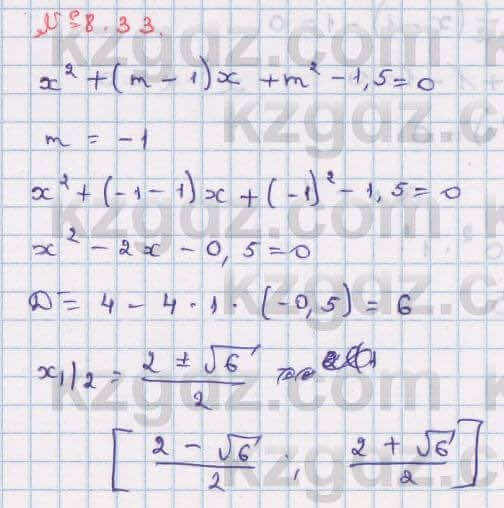 № 8.33.
x² + (m - 1)x + m² - 1,5 = 0
m = -1
x² + (-1 - 1)x + (-1)² - 1,5 = 0
x² - 2x - 0,5 = 0
D = 4 - 4 · 1 · (-0,5) = 6
x₁/₂ = (2 ± √6)/2
[(2 - √6)/2 ; (2 + √6)/2]
kzgdz.com